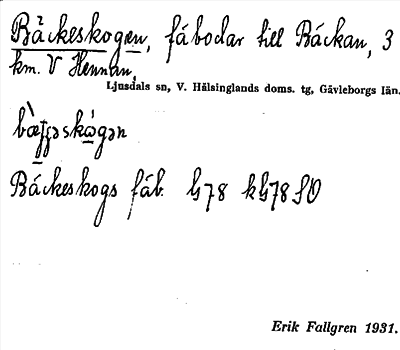 Bäckeskogen, fäbodar till Bäckan, 3
km. V Hennan,
Ljusdals sn, V. Hälsinglands doms. tg, Gävleborgs län.
Bäckeskogs fäb.
Erik Fallgren 1931.